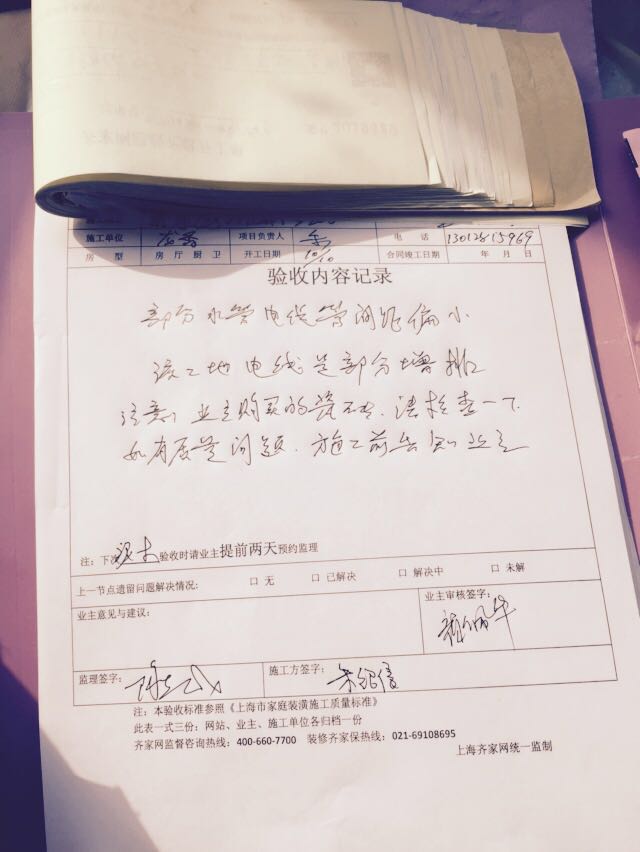 施工单位 项目负责人 电 话 13012815969
房 型 房 厅 厨 卫 开工日期 10/10 合同竣工日期 年 月 日
验收内容记录
部分水管电缆管间距偏小
该工地电线是部分增排
注意：业主购买的瓷砖，请检查一下
如有质量问题，施工前告知业主
注：下次泥木验收时请业主提前两天预约监理
上一节点遗留问题解决情况： □ 无 □ 已解决 □ 解决中 □ 未解
业主意见与建议：
业主审核签字：
监理签字： 施工方签字：
注：本验收标准参照《上海市家庭装潢施工质量标准》
此表一式三份：网站、业主、施工单位各归档一份
齐家网监督咨询热线：400-660-7700 装修齐家保热线：021-69108695
上海齐家网统一监制